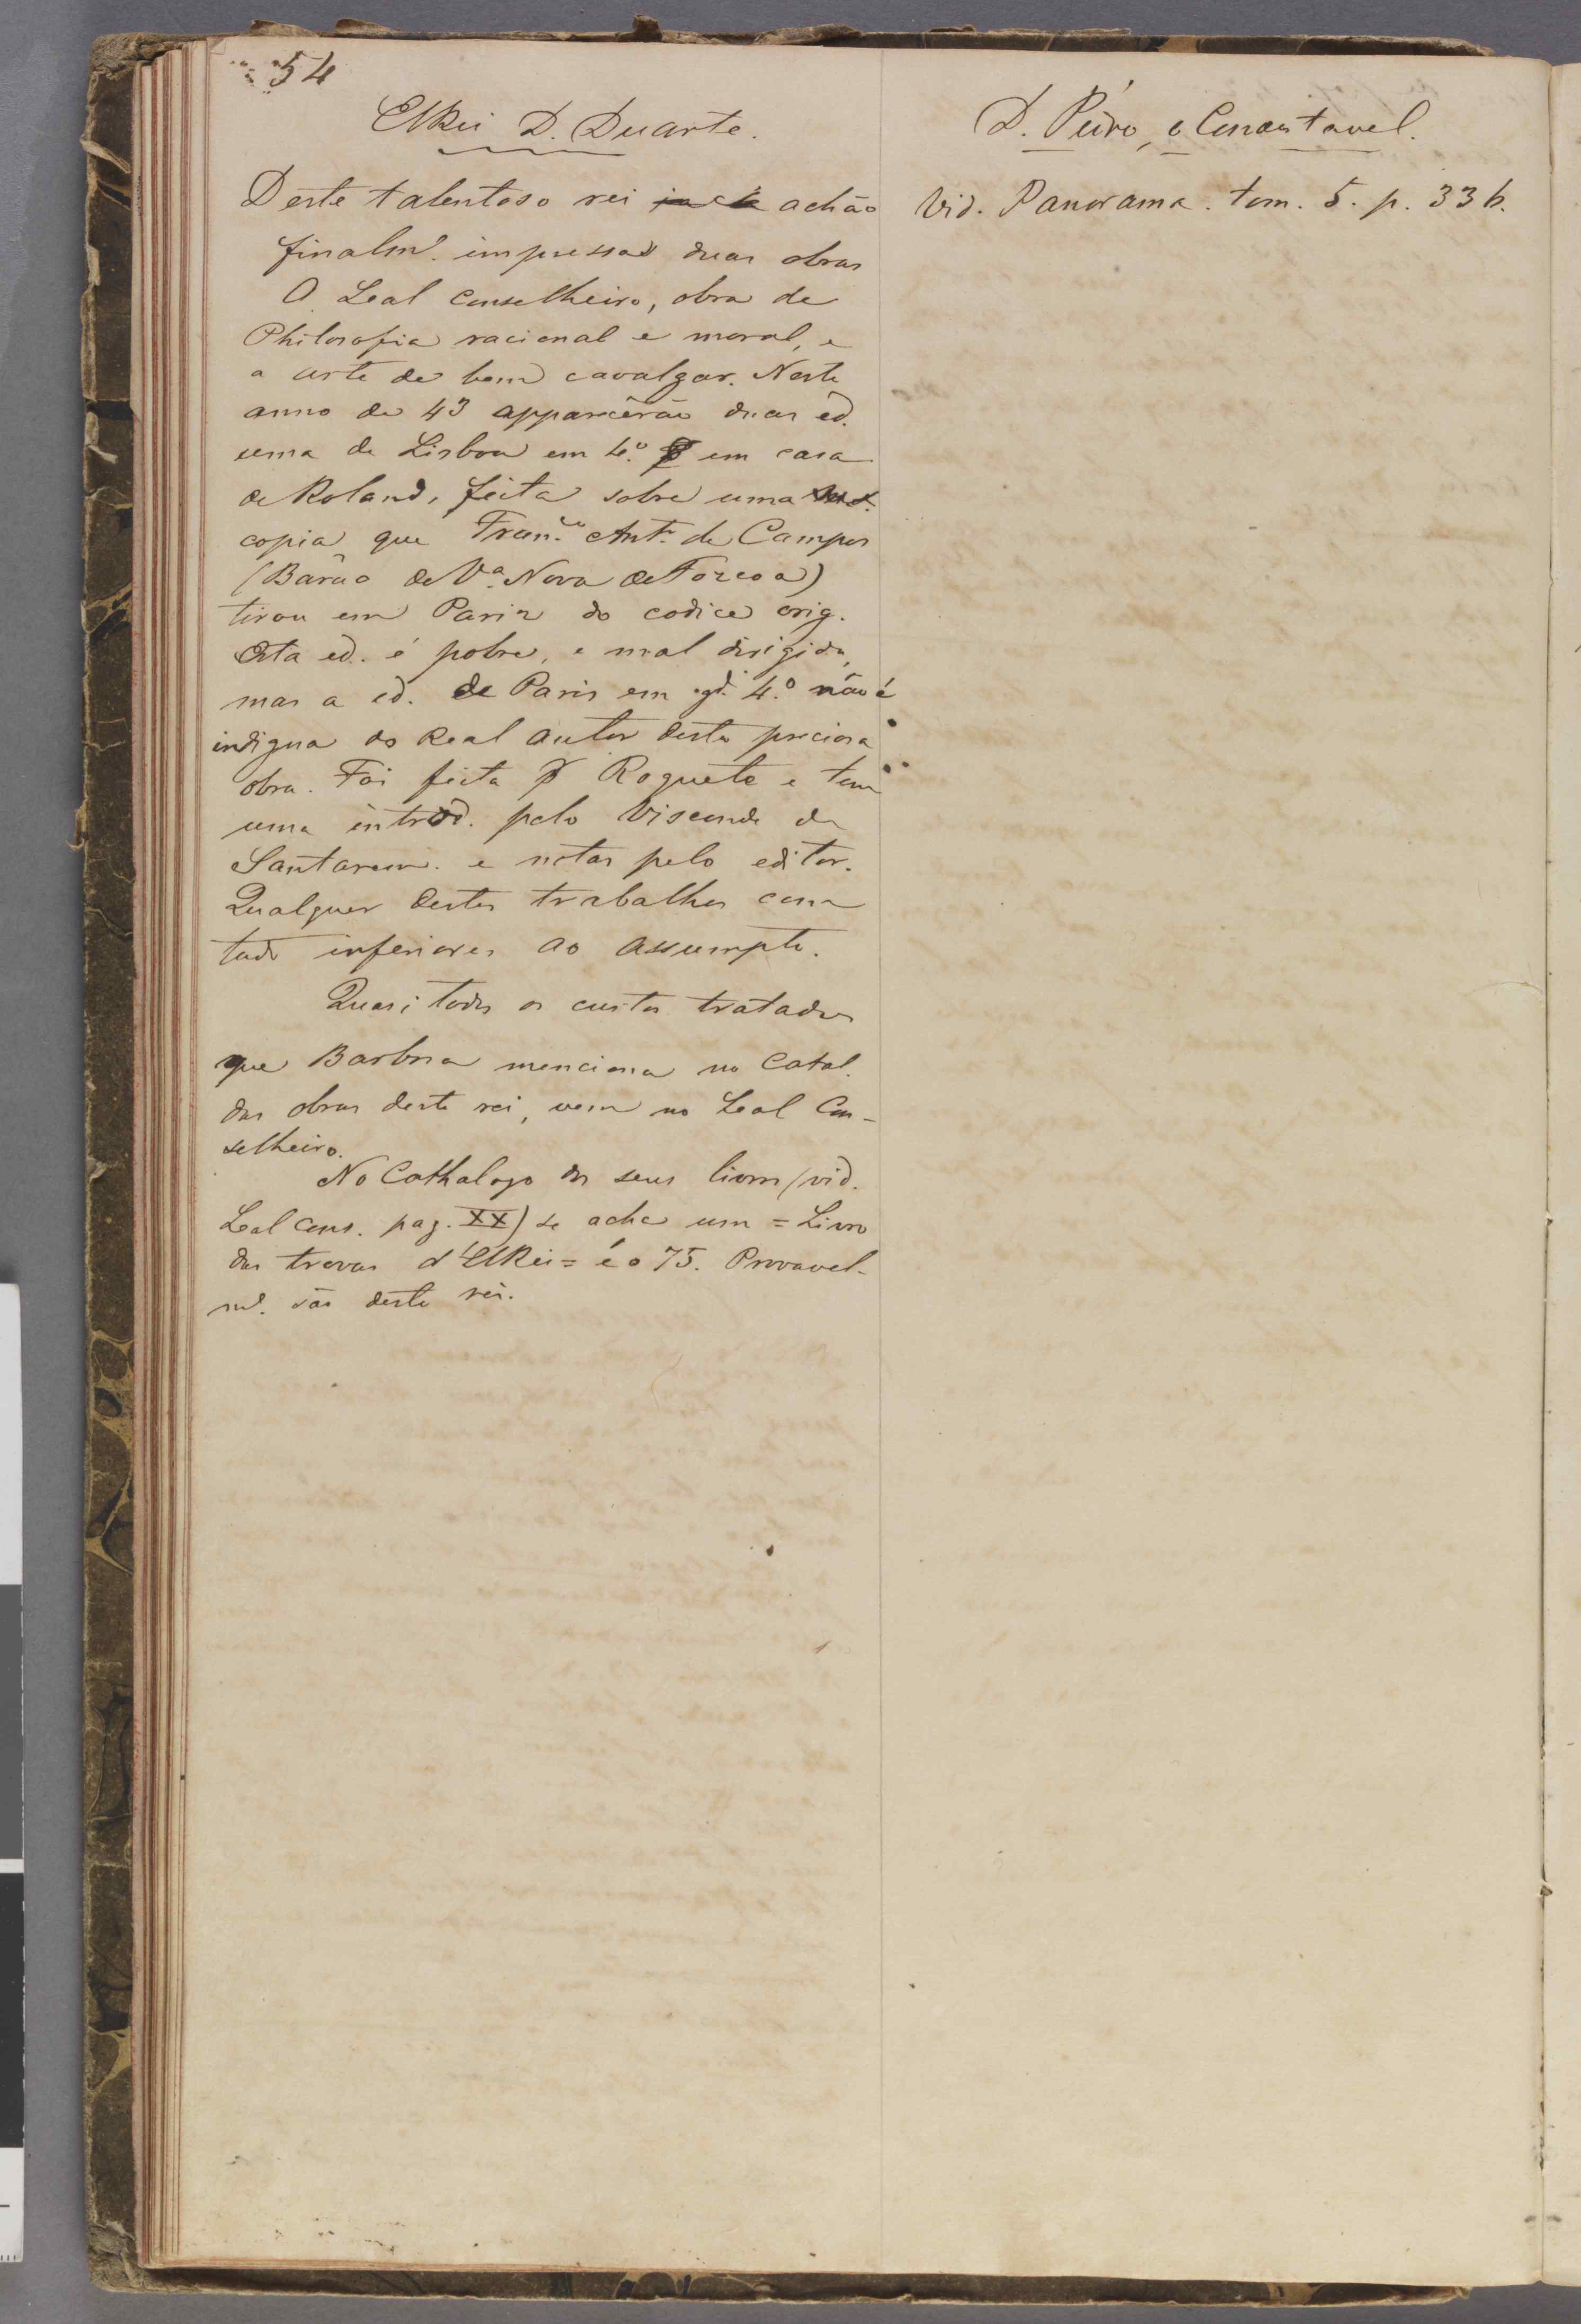 54
ElRei D. Duarte.
Deste talentoso rei achão
finalm.e impressas duas obras
O Leal Conselheiro, obra de
Philosofia racional e moral, e
a arte de bem cavalgar. Neste
anno de 43 apparecêrão duas ed.
uma de Lisboa em 4.º em casa
de Roland, feita sobre uma
copia que Fran.co Ant.º de Campos
(Barão de V.ª Nova de Fozcoa)
tirou em Pariz do codice orig.
Esta ed. é pobre, e mal dirigida,
mas a ed. de Paris em gd. 4.º não é
indigna do Real autor desta preciosa
obra. Foi feita p Roquete e tem
uma introd. pelo Visconde de
Santarem. e notas pelo editor.
Qualquer destes trabalhos com
tudo inferiores ao assumpto.
Quasi todos os curtos tratados
que Barbosa menciona no Catal.
das obras deste rei, vem no Leal Con-
selheiro.
No Cathalogo dos seus livros (vid.
Leal Cons. pag. XX) se acha um = Livro
das trovas d'ElRei = é o 75. Provavel-
m.e são deste rei.
D. Pedro, o Condestavel.
Vid. Panorama. tom. 5. p. 336.